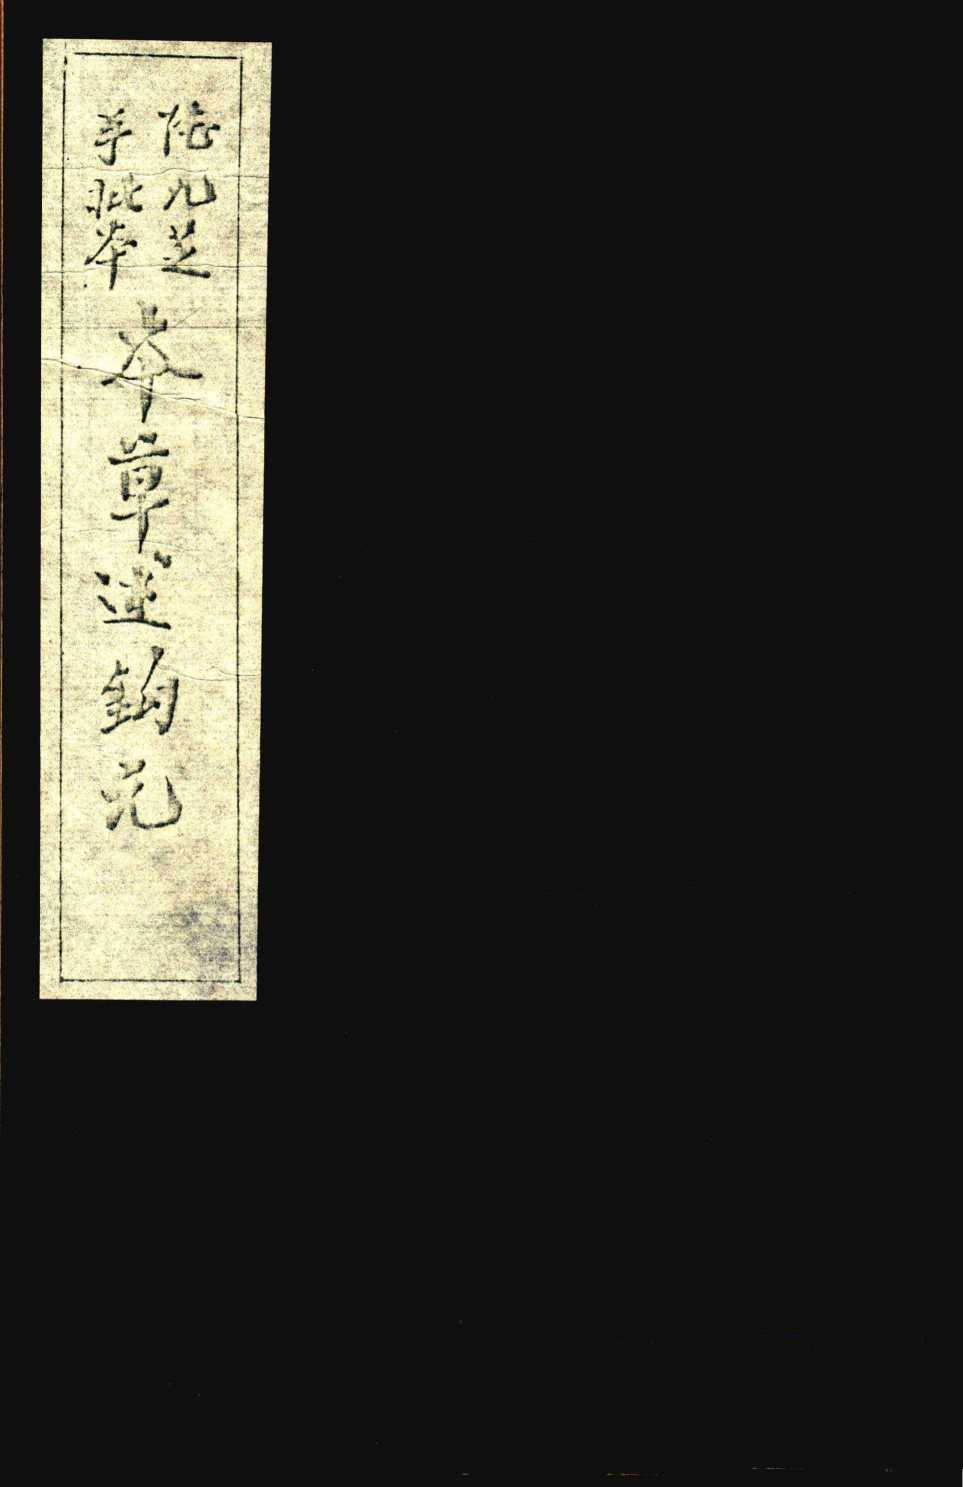 陸九芝
手批本
本草述鉤元